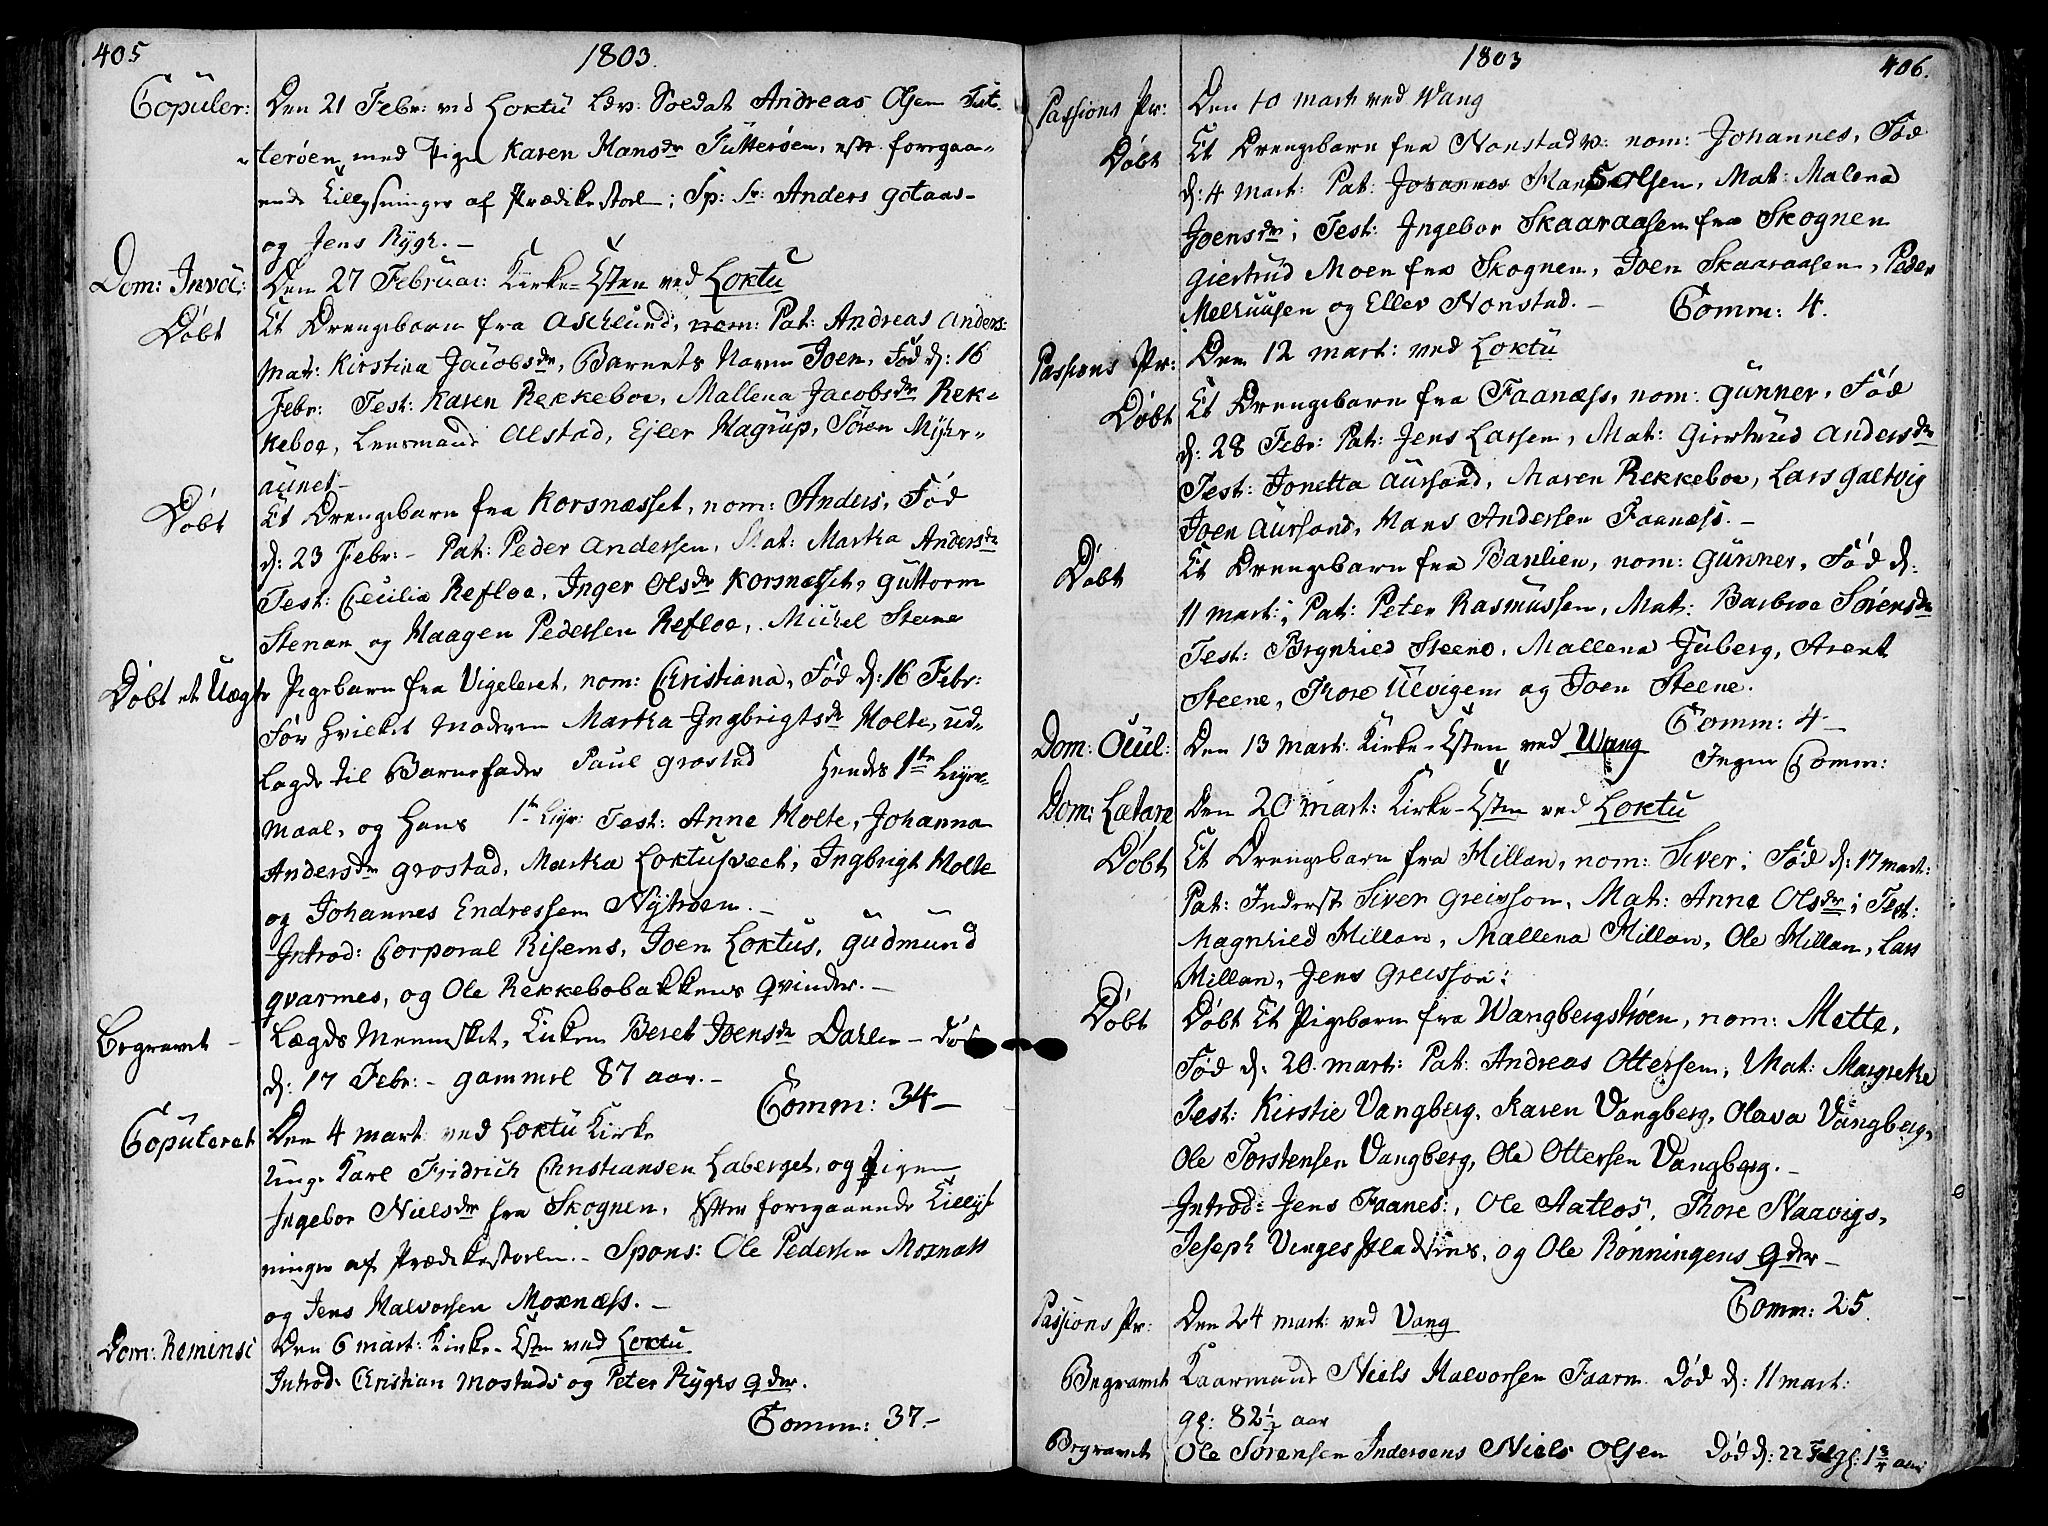 405
1803.
Copuler: Den 21 Febr: ved Loktu Læv: Soldat Andreas Olsen Fut-
terøen med Pige Karen Hansdr Futterøen, eftr foregaa-
ende Tillysninger af Prædikestoel; Sp: Sr: Anders Gotaas-
og Jens Rygh.-
Dom: Invoc: Den 27 Februar: Kirke-Esten ved Loktu
Døbt Et Drengebarn fra Asklund, nom: Pat: Andreas Anders:
Mat: Kirstina Jacobsdr, Barnets Navn Joen, Fød d: 16
Febr: Test: Karen Rekkeboe, Mallena Jacobsdr Rek-
keboe, Lensmand Alstad, Ejler Hagrup, Sören Myhr-
aunet-
Døbt Et Drengebarn fra Korsnæsset, nom: Anders, Fød
d: 23 Febr:- Pat: Peder Andersen, Mat: Martha Andersdr
Test: Cecilia Refloe, Inger Olsdr Korsnæsset, Guttorm
Stenan og Haagen Pedersen Refloe, Mickel Steene
Døbt et Uægte Pigebarn fra Vigeleret, nom: Christiana, Fød d: 16 Febr:
Før hvilket Moderen Martha Ingbrigtsdr Holte, ud-
lagde til Barnefader Paul Grostad Hendes 1te Leyer-
maal, og Hans 1te Leyr: Test: Anne Holte, Johanna
Andersdr Grostad, Martha Loktusveet, Ingbrigt Holte
og Johannes Endressen Nytrøen.-
Introd: Corporal Risems, Joen Loktus, Gudmund
Qvarmes, og Ole Rekkebobakkens Qvinder.-
Begravet- Lægds Mennesket, Enken Beret Joensdr Dahlen- død
d: 17 Febr:- gammel 87 aar.-
Comm: 34-
Copuleret Den 4 Mart: ved Loktu Kirke
Unge Karl Fridrich Christiansen Laberget, og Pigen
Ingebor Nielsdr fra Skognen, Efter foregaaende Tillys-
ninger af Prædikestolen.- Spons: Ole Pedersen Moxnæss
og Jens Halvorsen Moxnæss.-
Dom: Reminsc Den 6 Mart: Kirke-Esten ved Loktu
Introd: Christian Mostads og Peter Ryghs Qder.
Comm: 37.-
1803
406.
Passions Pr: Den 10 Mart: ved Wang
Døbt Et Drengebarn fra Nonstad nom: Johannes, Fød
d: 4 Mart: Pat: Johannes Olsen, Mat: Malena
Joensdr; Test: Ingebor Skaaraasen fra Skognen
Giertrud Moen fra Skognen, Joen Skaaraasen, Peder
Melhuusen og Ellev Nonstad.- Comm: 4.
Passions Pr: Den 12 Mart: ved Loktu
Døbt Et Drengebarn fra Faanæss, nom: Gunner, Fød
d: 28 Febr: Pat: Jens Larsen, Mat: Giertrud Andersdr
Test: Jonetta Aursand, Maren Rekkeboe, Lars Galtvig
Joen Aursand, Hans Andersen Faanæss.-
Døbt Et Drengebarn fra Baulien, nom: Gunner, Fød d:
11 Mart:; Pat: Peter Rasmussen, Mat: Barbroe Sørensdr
Test: Brynhild Steene, Mallena Juberg, Arent
Steene, Thore Ulvigen og Joen Steene.
Comm: 4-
Dom: Ocul: Den 13 Mart: Kirke-Esten ved Wang Ingen Comm:
Dom: Lætare Den 20 Mart: Kirke-Esten ved Loktu
Døbt Et Drengebarn fra Hillan, nom: Siver; Fød d: 17 Mart:
Pat: Inderst Siver Greisson, Mat: Anne Olsdr; Test:
Magnhild Hillan, Mallena Hillan, Ole Hillan, Lars
Hillan, Jens Greisson:
Døbt Døbt Et Pigebarn fra Wangbergstrøen, nom: Mette,
Fød d: 20 Mart: Pat: Andreas Ottersen, Mat: Margrethe
Test: Kirstie Vangberg, Karen Vangberg, Olava Vangberg,
Ole Torstensen Vangberg, Ole Ottersen Vangberg.-
Introd: Jens Faanes:, Ole Aatløs, Thore Haavigs,
Joseph Vinges, og Ole Rønningens Qder-
Comm: 25.
Passions Pr: Den 24 Mart: ved Vang
Begravet Kaarmand Niels Halvorsen Faarn. Død d: 11 Mart:
gl: 82½ aar
Begravet Ole Sørensen Inderøens Niels Olsen Død d: 22 gl: 1¾ aar